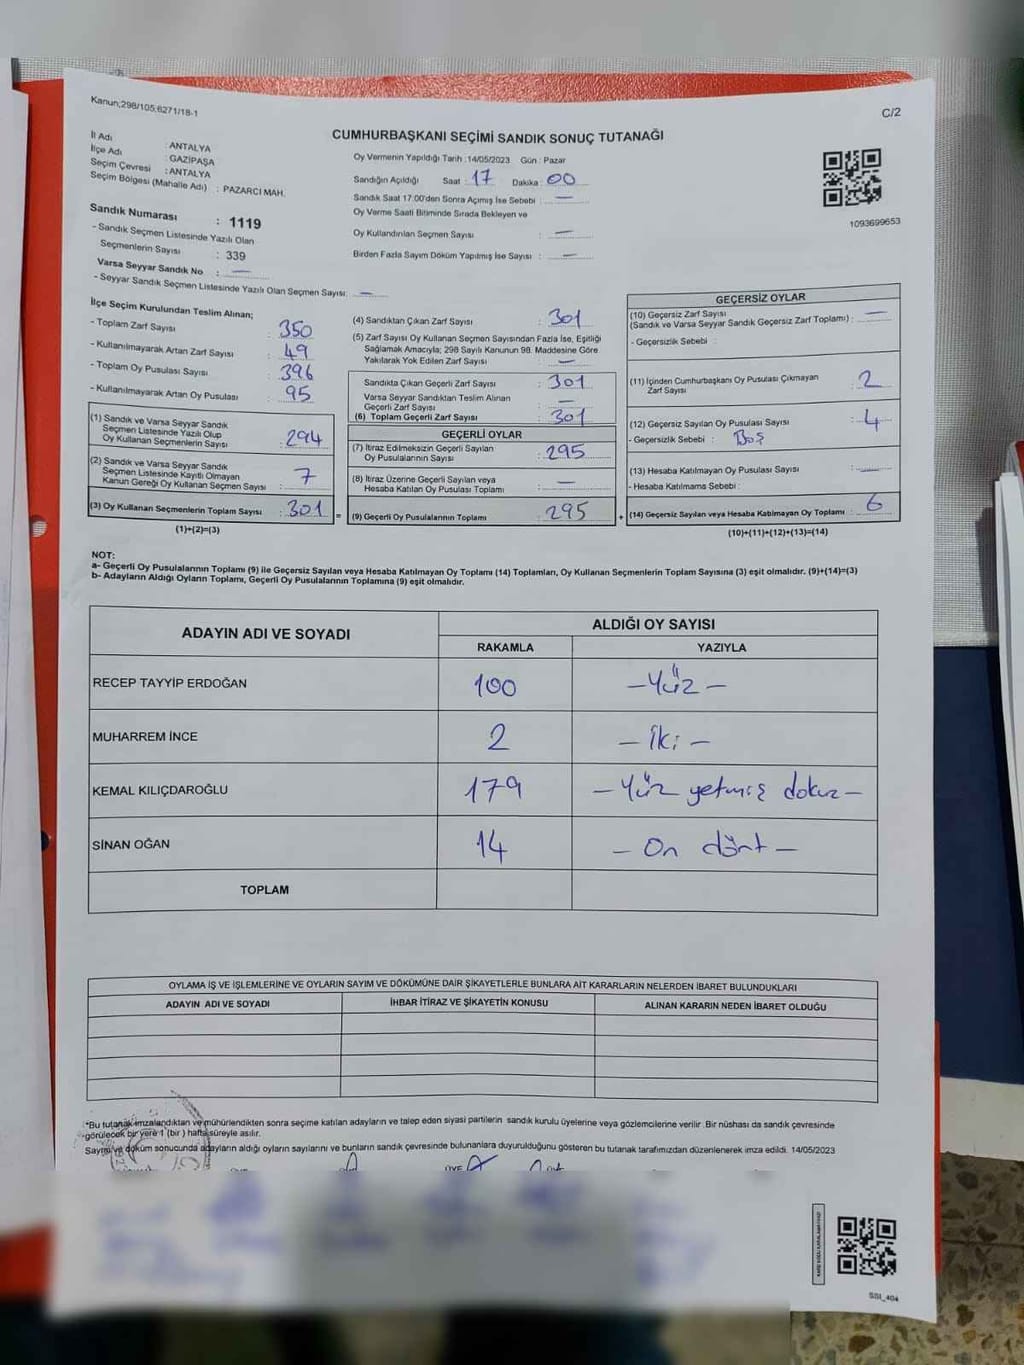 Kanun;298/105,6271/18-1
C/2
CUMHURBAŞKANI SEÇİMİ SANDIK SONUÇ TUTANAĞI
İl Adı : ANTALYA
İlçe Adı : GAZİPAŞA
Seçim Çevresi : ANTALYA
Seçim Bölgesi (Mahalle Adı) : PAZARCI MAH.
Sandık Numarası : 1119
- Sandık Seçmen Listesinde Yazılı Olan
Seçmenlerin Sayısı : 339
Varsa Seyyar Sandık No : —
- Seyyar Sandık Seçmen Listesinde Yazılı Olan Seçmen Sayısı: —
Oy Vermenin Yapıldığı Tarih :14/05/2023 Gün : Pazar
Sandığın Açıldığı Saat : 17 Dakika : 00
Sandık Saat 17:00'den Sonra Açımış İse Sebebi : —
Oy Verme Saati Bitiminde Sırada Bekleyen ve
Oy Kullandırılan Seçmen Sayısı : —
Birden Fazla Sayım Döküm Yapılmış İse Sayısı : —
1093699653
İlçe Seçim Kurulundan Teslim Alınan;
- Toplam Zarf Sayısı : 350
- Kullanılmayarak Artan Zarf Sayısı : 49
- Toplam Oy Pusulası Sayısı : 396
- Kullanılmayarak Artan Oy Pusulası : 95
(1) Sandık ve Varsa Seyyar Sandık
Seçmen Listesinde Yazılı Olup
Oy Kullanan Seçmenlerin Sayısı : 294
(2) Sandık ve Varsa Seyyar Sandık
Seçmen Listesinde Kayıtlı Olmayan
Kanun Gereği Oy Kullanan Seçmen Sayısı : 7
(3) Oy Kullanan Seçmenlerin Toplam Sayısı : 301
(1)+(2)=(3)
=
(4) Sandıktan Çıkan Zarf Sayısı : 301
(5) Zarf Sayısı Oy Kullanan Seçmen Sayısından Fazla İse, Eşitliği
Sağlamak Amacıyla; 298 Sayılı Kanunun 98. Maddesine Göre
Yakılarak Yok Edilen Zarf Sayısı : —
Sandıkta Çıkan Geçerli Zarf Sayısı : 301
Varsa Seyyar Sandıktan Teslim Alınan
Geçerli Zarf Sayısı : —
(6) Toplam Geçerli Zarf Sayısı : 301
GEÇERLİ OYLAR
(7) İtiraz Edilmeksizin Geçerli Sayılan
Oy Pusulalarının Sayısı : 295
(8) İtiraz Üzerine Geçerli Sayılan veya
Hesaba Katılan Oy Pusulası Toplamı : —
(9) Geçerli Oy Pusulalarının Toplamı : 295
+
GEÇERSİZ OYLAR
(10) Geçersiz Zarf Sayısı
(Sandık ve Varsa Seyyar Sandık Geçersiz Zarf Toplamı) : —
- Geçersizlik Sebebi :
(11) İçinden Cumhurbaşkanı Oy Pusulası Çıkmayan
Zarf Sayısı : 2
(12) Geçersiz Sayılan Oy Pusulası Sayısı : 4
- Geçersizlik Sebebi : Boş
(13) Hesaba Katılmayan Oy Pusulası Sayısı : —
- Hesaba Katılmama Sebebi :
(14) Geçersiz Sayılan veya Hesaba Katılmayan Oy Toplamı : 6
(10)+(11)+(12)+(13)=(14)
NOT:
a- Geçerli Oy Pusulalarının Toplamı (9) ile Geçersiz Sayılan veya Hesaba Katılmayan Oy Toplamı (14) Toplamları, Oy Kullanan Seçmenlerin Toplam Sayısına (3) eşit olmalıdır. (9)+(14)=(3)
b- Adayların Aldığı Oyların Toplamı, Geçerli Oy Pusulalarının Toplamına (9) eşit olmalıdır.
ADAYIN ADI VE SOYADI
ALDIĞI OY SAYISI
RAKAMLA YAZIYLA
RECEP TAYYİP ERDOĞAN 100 – Yüz –
MUHARREM İNCE 2 – İki –
KEMAL KILIÇDAROĞLU 179 – Yüz yetmiş dokuz –
SİNAN OĞAN 14 – On dört –
TOPLAM
OYLAMA İŞ VE İŞLEMLERİNE VE OYLARIN SAYIM VE DÖKÜMÜNE DAİR ŞİKAYETLERLE BUNLARA AİT KARARLARIN NELERDEN İBARET BULUNDUKLARI
ADAYIN ADI VE SOYADI İHBAR İTİRAZ VE ŞİKAYETİN KONUSU ALINAN KARARIN NEDEN İBARET OLDUĞU
*Bu tutanak imzalandıktan ve mühürlendikten sonra seçime katılan adayların ve talep eden siyasi partilerin sandık kurulu üyelerine veya gözlemcilerine verilir .Bir nüshası da sandık çevresinde
görülecek bir yere 1 (bir ) hafta süreyle asılır.
Sayım ve döküm sonucunda adayların aldığı oyların sayılarını ve bunların sandık çevresinde bulunanlara duyurulduğunu gösteren bu tutanak tarafımızdan düzenlenerek imza edildi. 14/05/2023
SSI_404